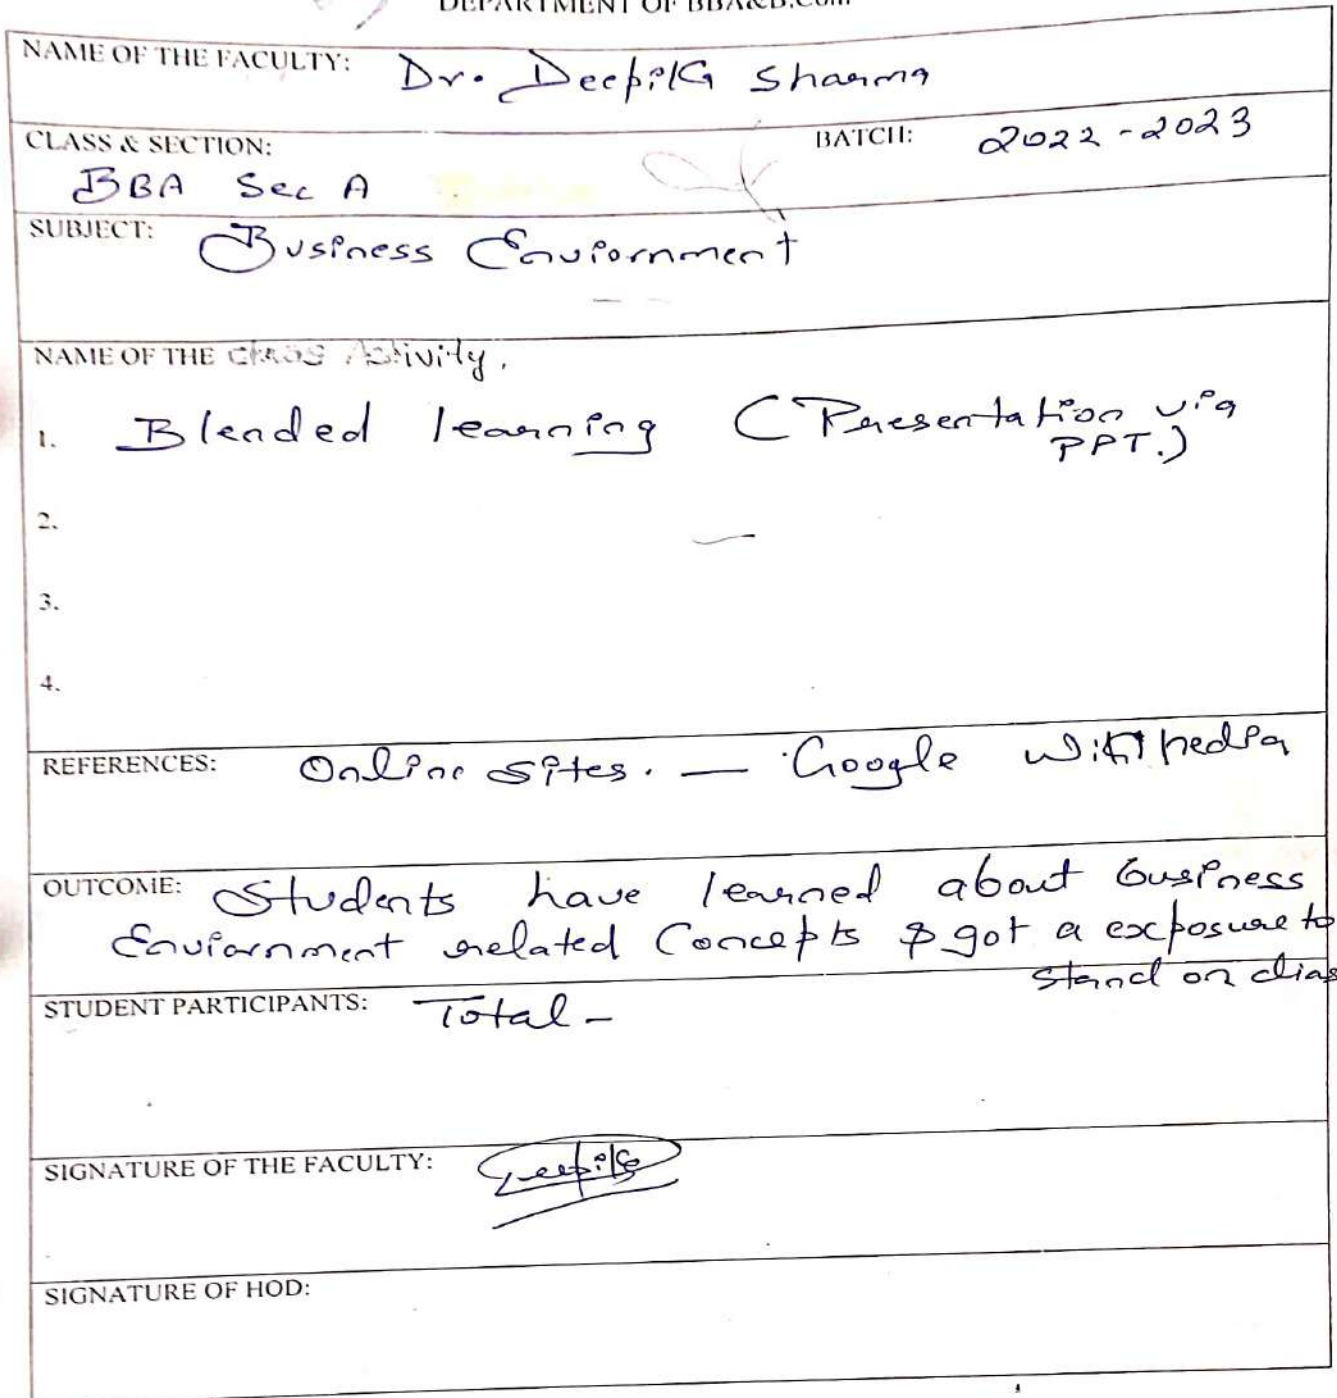 DEPARTMENT OF BBA&B.Com
NAME OF THE FACULTY: Dr. Deepika Sharma
CLASS & SECTION: BATCH: 2022-2023
BBA Sec A
SUBJECT: Business Enviornment
NAME OF THE Class Activity.
1. Blended learning (Presentation via
PPT.)
2.
3.
4.
REFERENCES: Online sites. — Google Wikipedia
OUTCOME: Students have learned about business
Enviornment related Concepts & got a exposure to
stand on dias
STUDENT PARTICIPANTS: Total -
SIGNATURE OF THE FACULTY: Deepika
SIGNATURE OF HOD: